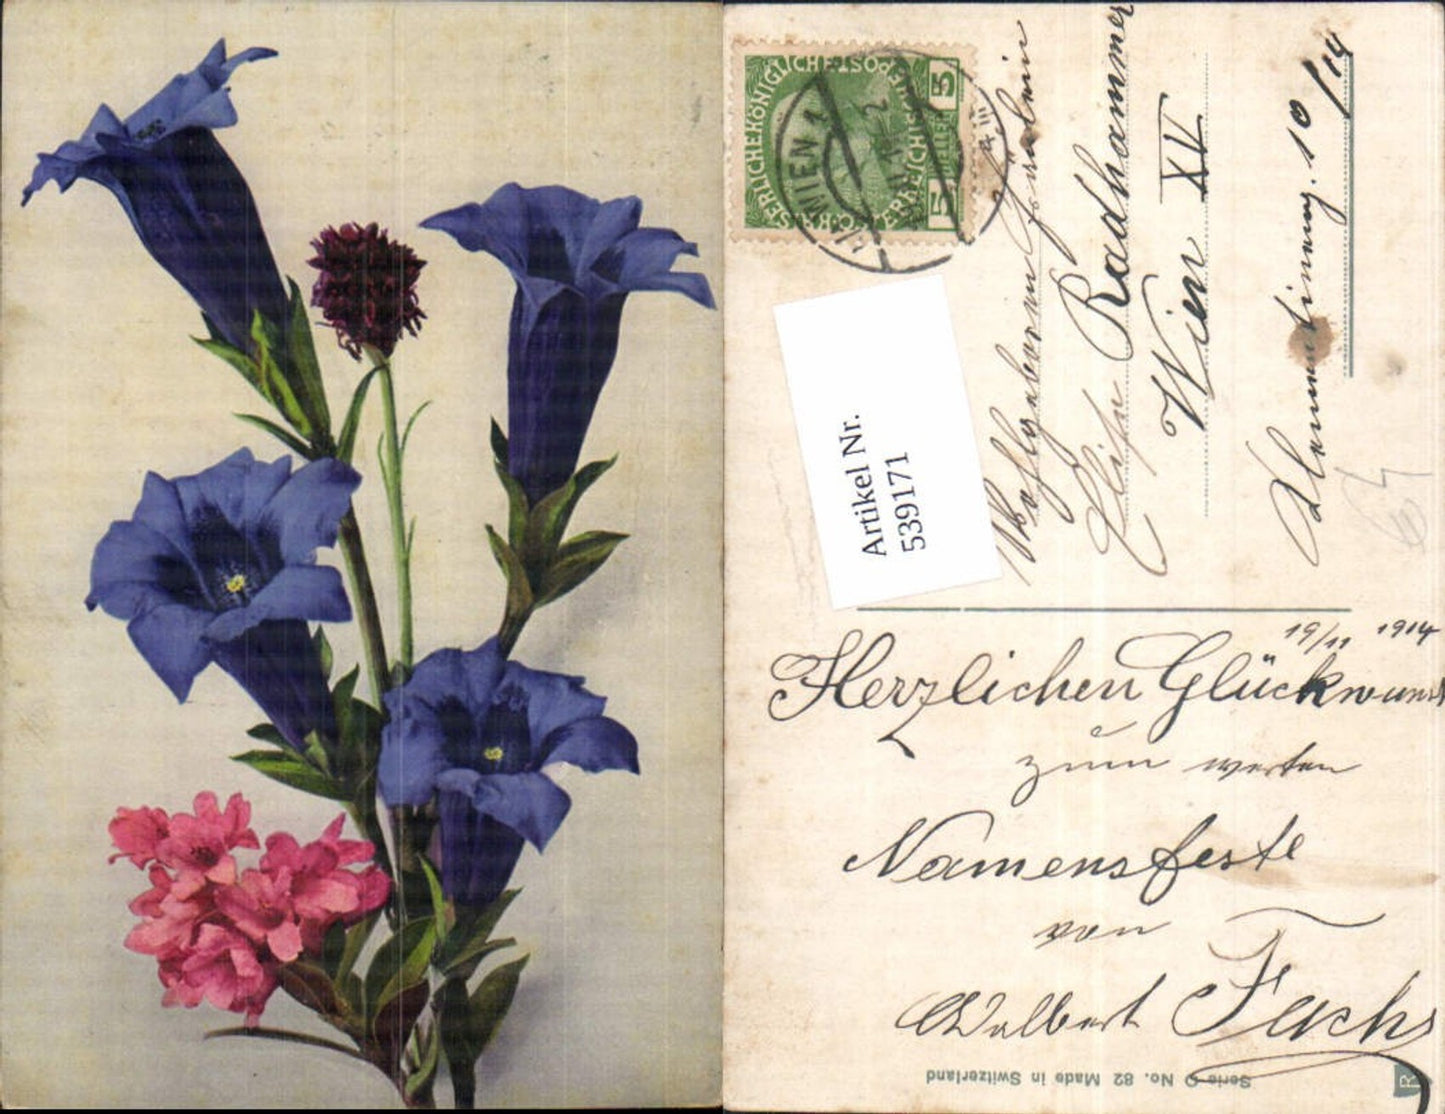 KAISERLICHE KÖNIGLICHE ÖSTERREICHISCHE POST
5 HELLER 5
WIEN 1
Artikel Nr.
539171
Wohlgeboren Fräulein
Elise Radhammer
Wien XV
10/14
19/11 1914
Herzlichen Glückwuns
zum werten
Namensfeste
von
Walbert Fuchs
Serie O No. 82 Made in Switzerland